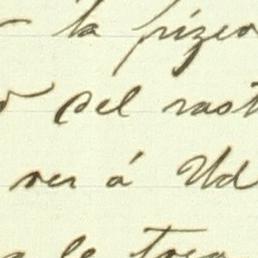 la pizco
del rast
ver á Ud
le toca